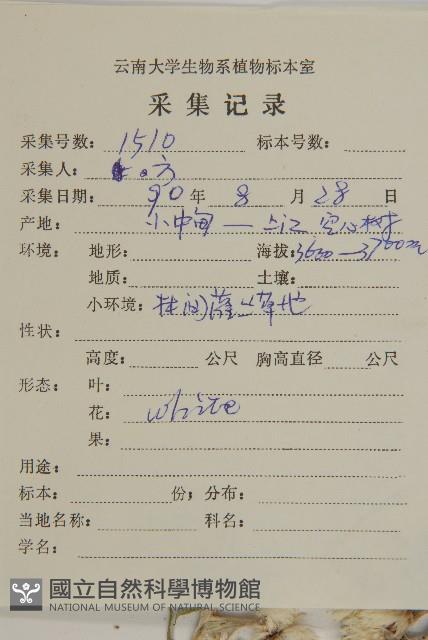 云南大学生物系植物标本室
采集记录
采集号数: 1510 标本号数:
采集人: 方
采集日期: 90 年 8 月 28 日
产地: 小中甸 — 上江 空心树
环境: 地形: 海拔: 3600—3700m
地质: 土壤:
小环境: 林间灌丛草地
性状:
高度: 公尺 胸高直径 公尺
形态: 叶:
花: white
果:
用途:
标本: 份; 分布:
当地名称: 科名:
学名:
國立自然科學博物館
NATIONAL MUSEUM OF NATURAL SCIENCE